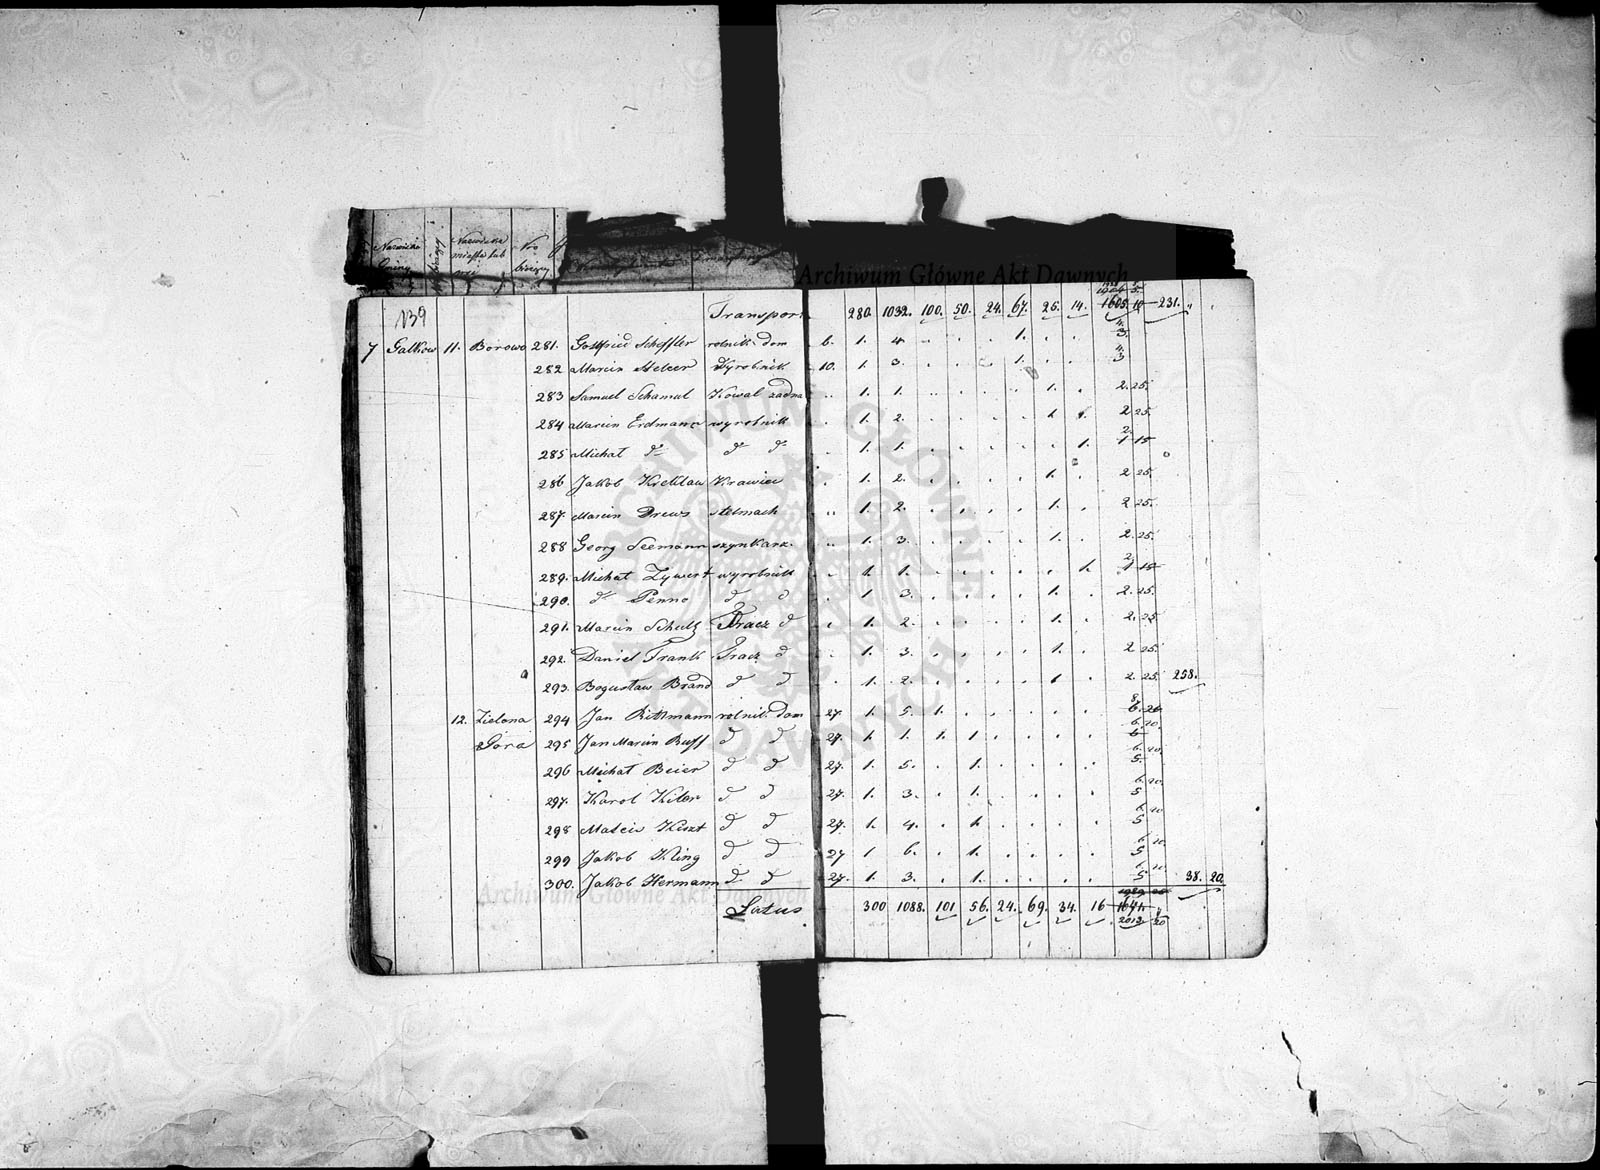 Archiwum Główne Akt Dawnych
Nazwisko Gminy
Nazwiska miasta lub wsi
Nro bieżący
139 Transport 280. 1032. 100. 50. 24. 67. 25. 14. 1605. 10 231. "
7 Galkow 11. Borowo 281. Gottfried Scheffler rolnik dom 6. 1. 4. 1. 4. 3.
282 Marcin Stelcer Wyrobnik 10. 1. 3. 1. 4. 3
283 Samuel Schamel Kowal żadna 1. 1. 1. 2. 25.
284 Marcin Erdmann wyrobnik 1. 2. 1. 2 25.
285 Michał do do do 1. 1. 1. 2. 1 15
286 Jakob Kreklaw Krawiec 1. 2. 1. 2 25.
287. Marcin Drews stelmach 1. 2. 1. 2 25.
288 Georg Seemann szynkarz. 1. 3. 1. 2. 25.
289. Michał Zywert wyrobnik 1. 1. 1. 2. 1 15
290. do Penno d d 1. 3. 1. 2. 25.
291. Marcin Schultz Tracz d 1. 2. 1. 2. 25
292. Daniel Frank Tracz d 1. 3. 1. 2 25.
293. Bogusław Brand d d 1. 2. 1 2. 25. 258.
12. Zielona 294 Jan Rittmann rolnik dom 27. 1. 5. 1. 8. 6. 20
Góra 295 Jan Marcin Buff d d 27. 1. 1. 1. 1. 6. 20. 5
296 Michał Beier d d 27. 1. 5. 1. 6. 20. 5.
297. Karol Kiler d. d 27. 1. 3. 1. 6. 20. 5
298 Maciei Kiszt d d 27. 1. 4. 1. 6. 20 5
299 Jakob Kling d d 27 1 6. 1. 6. 20. 5
300. Jakob Hermann d. d 27. 1. 3. 1. 6. 20. 5 38. 20.
Latus 300 1088. 101 56. 24. 69. 34. 16 1989 20
1641.
2013. 20
Archiwum Główne Akt Dawnych
ARCHIWUM GŁÓWNE AKT DAWNYCH